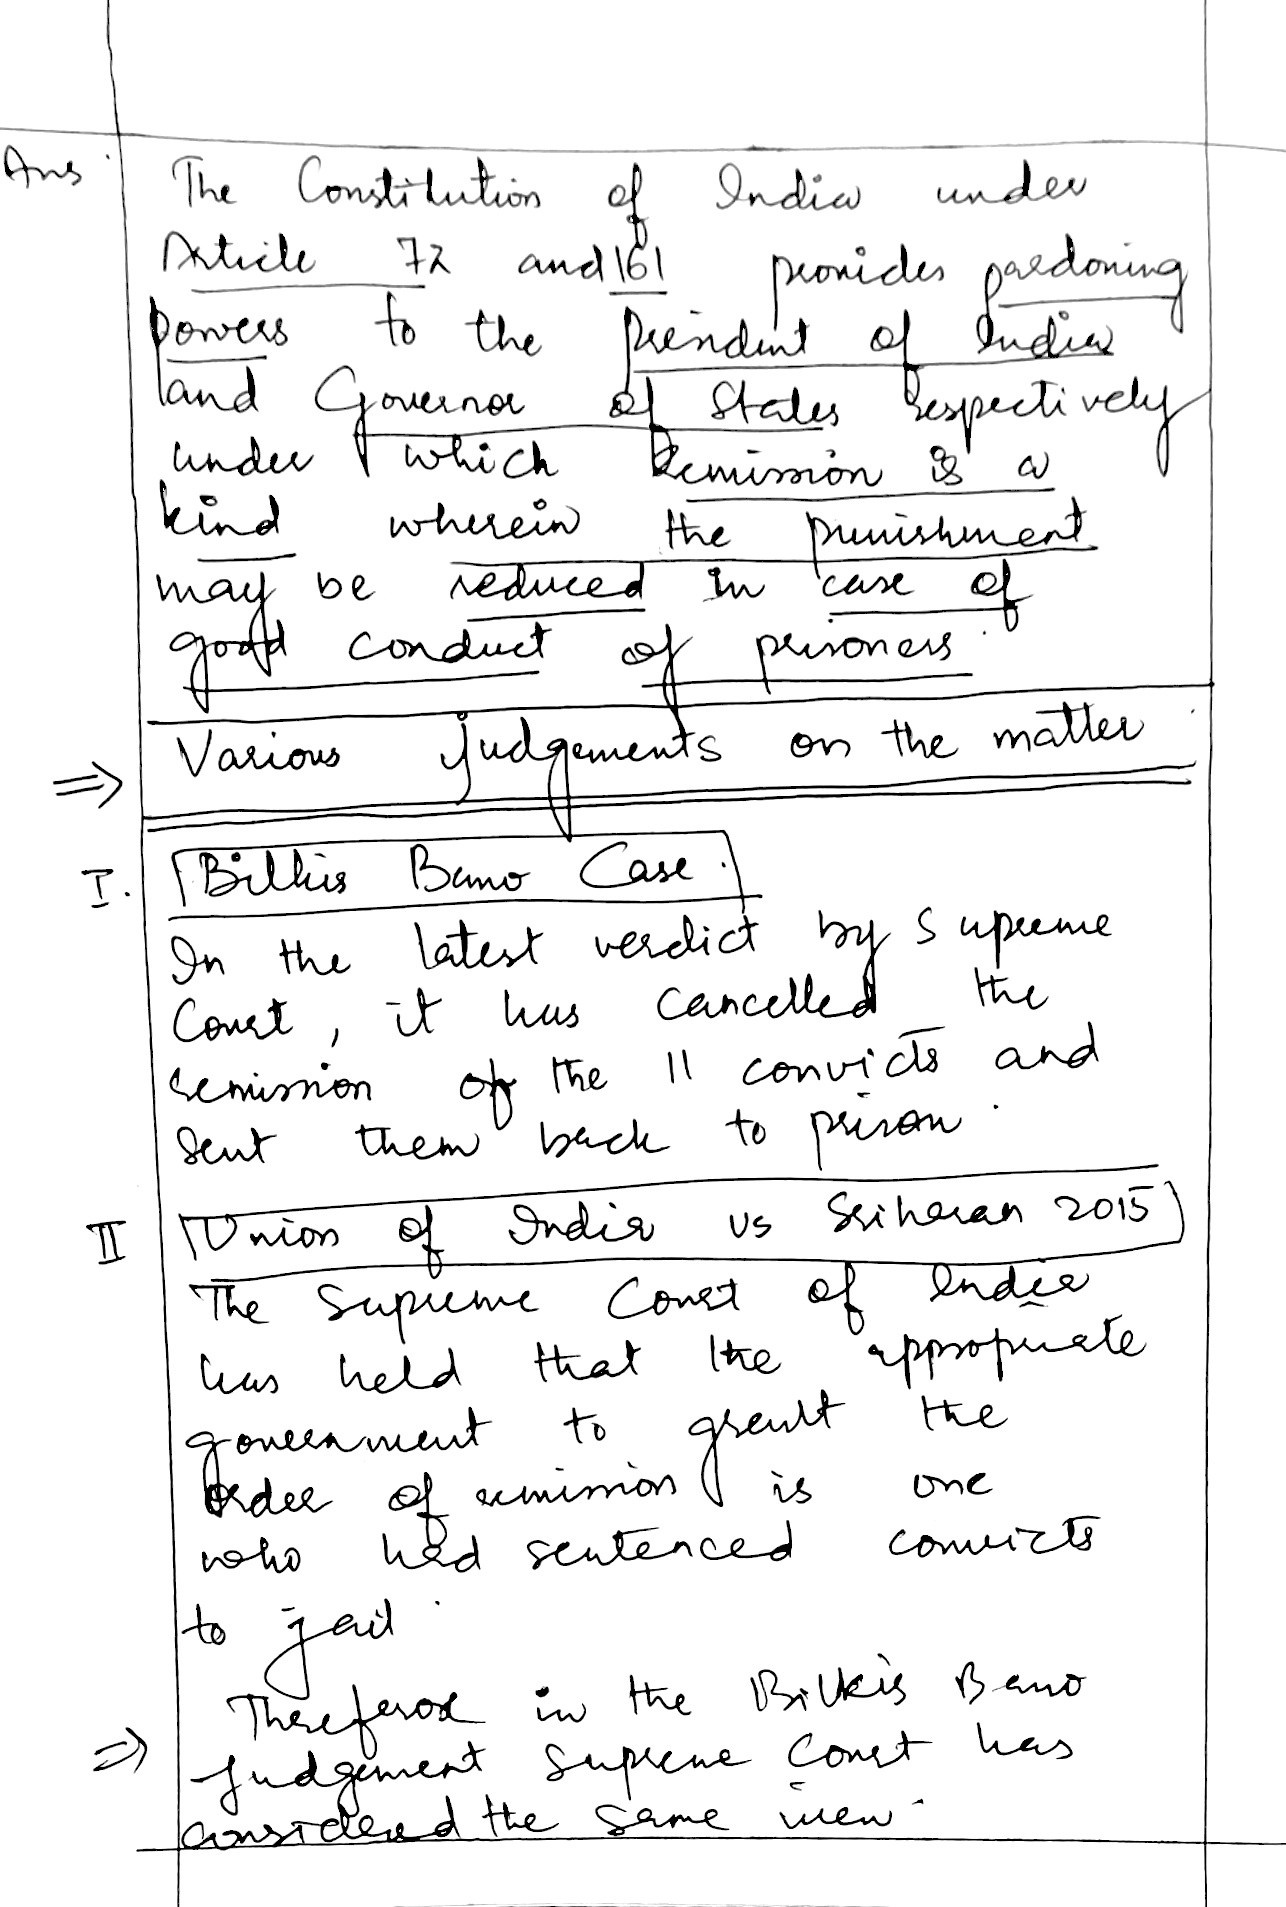 Ans. The Constitution of India under
Article 72 and 161 provides pardoning
powers to the President of India
and Governor of States respectively
under which Remission is a
kind wherein the punishment
may be reduced in case of
good conduct of prisoners.
⇒ Various judgements on the matter
I. Bilkis Bano Case.
In the latest verdict by Supreme
Court, it has cancelled the
remission of the 11 convicts and
sent them back to prison.
II Union of India vs Sriharan 2015
The Supreme Court of India
has held that the appropriate
government to grant the
order of remission is one
who had sentenced convicts
to jail.
⇒ Therefore in the Bilkis Bano
judgement Supreme Court has
considered the same view.